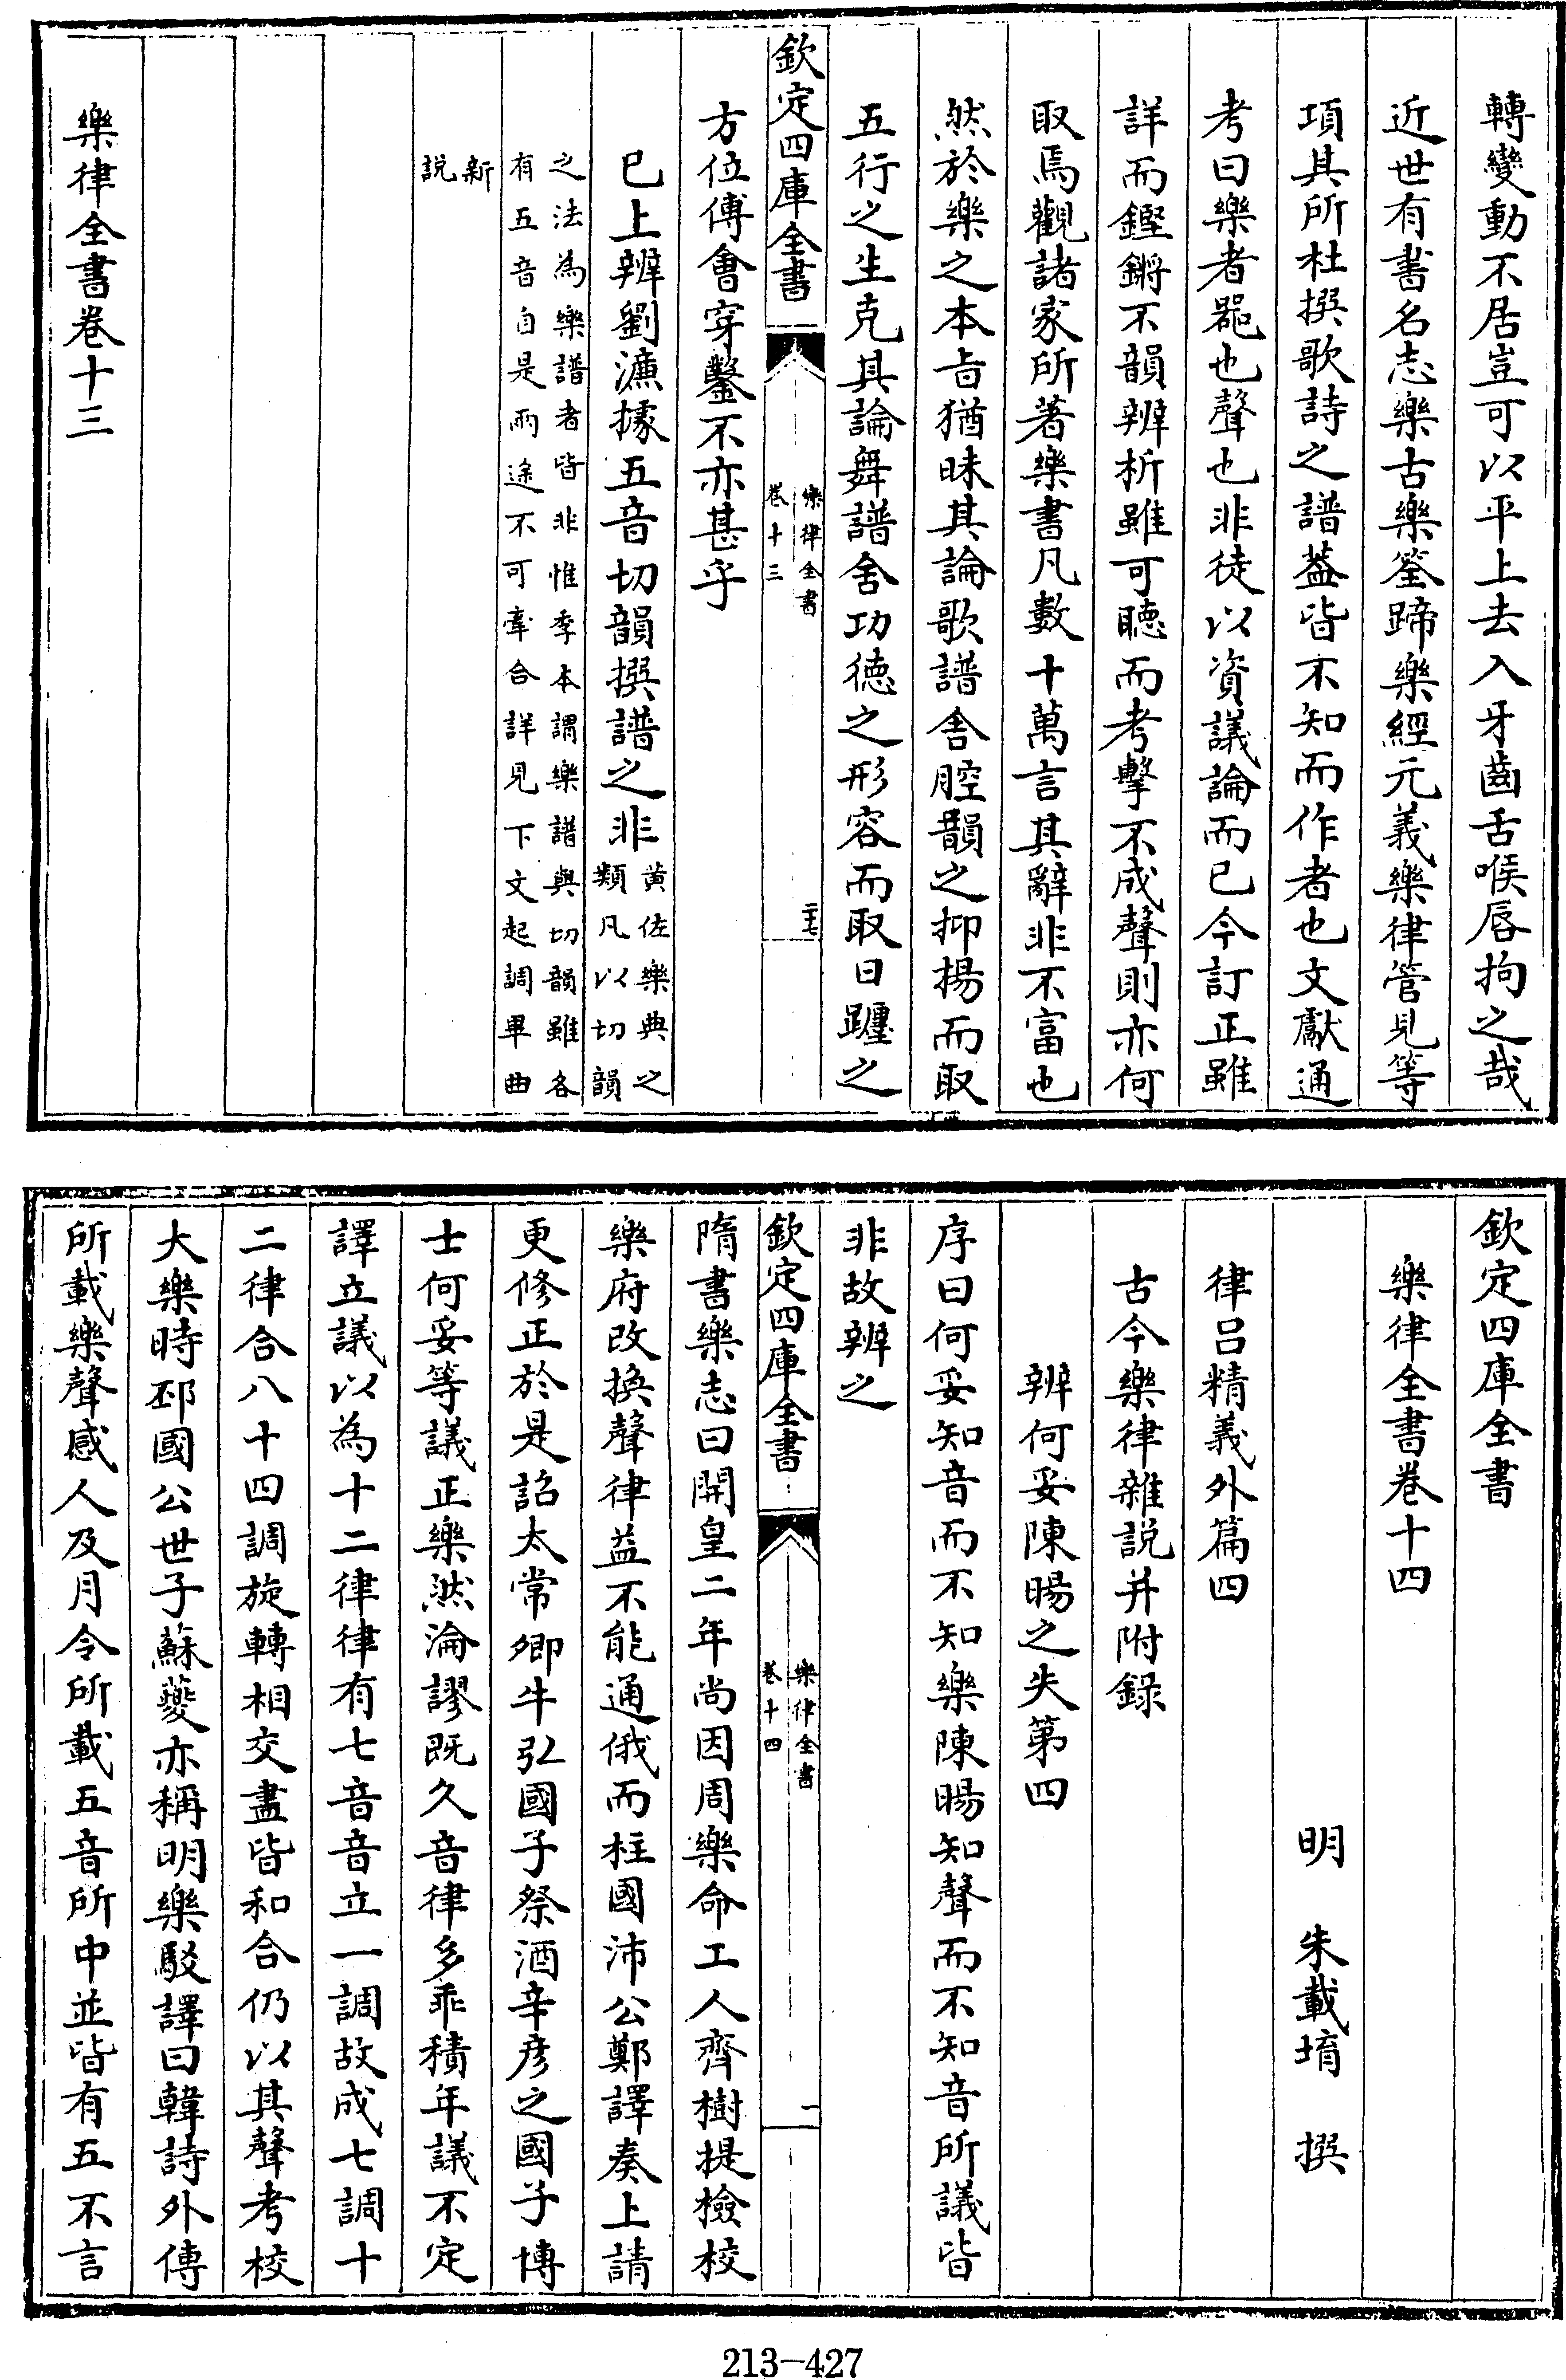 轉變動不居豈可以平上去入牙齒舌喉唇拘之哉
近世有書名志樂古樂筌蹄樂經元義樂律管見等
項其所杜撰歌詩之譜葢皆不知而作者也文獻通
考曰樂者器也聲也非徒以資議論而已今訂正雖
詳而鏗鏘不韻辨析雖可聽而考擊不成聲則亦何
取焉觀諸家所著樂書凡數十萬言其辭非不富也
然於樂之本旨猶昧其論歌譜舍腔韻之抑揚而取
五行之生克其論舞譜舍功徳之形容而取日躔之
欽定四庫全書
樂律全書
卷十三
二十七
方位傅會穿鑿不亦甚乎
已上辨劉濂據五音切韻撰譜之非
黄佐樂典之
類凡以切韻
之法為樂譜者皆非惟季本謂樂譜與切韻雖各
有五音自是兩途不可牽合詳見下文起調畢曲
新
說
樂律全書卷十三
欽定四庫全書
樂律全書卷十四
明 朱載堉 撰
律呂精義外篇四
古今樂律雜說并附録
辨何妥陳暘之失第四
序曰何妥知音而不知樂陳暘知聲而不知音所議皆
非故辨之
欽定四庫全書
樂律全書
卷十四
一
隋書樂志曰開皇二年尚因周樂命工人齊樹提檢校
樂府改換聲律益不能通俄而柱國沛公鄭譯奏上請
更修正於是詔太常卿牛弘國子祭酒辛彦之國子博
士何妥等議正樂然淪謬既久音律多乖積年議不定
譯立議以為十二律律有七音音立一調故成七調十
二律合八十四調旋轉相交盡皆和合仍以其聲考校
大樂時邳國公世子蘇夔亦稱明樂駁譯曰韓詩外傳
所載樂聲感人及月令所載五音所中並皆有五不言
213-427